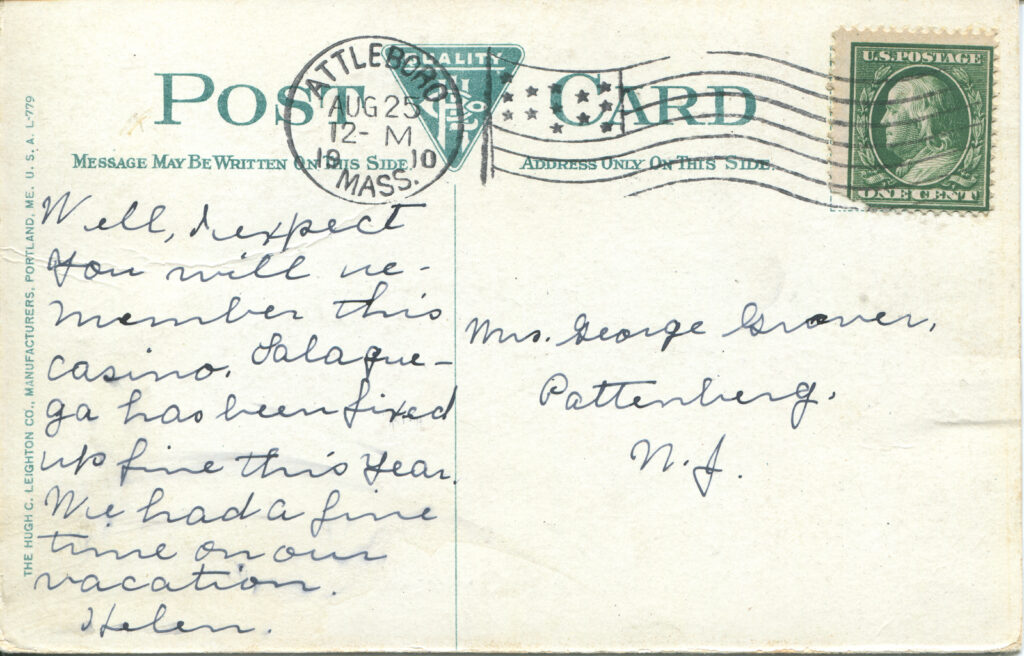 POST CARD
QUALITY
ATTLEBORO
AUG 25
12- M
19 10
MASS.
U.S. POSTAGE
ONE CENT
MESSAGE MAY BE WRITTEN ON THIS SIDE.
ADDRESS ONLY ON THIS SIDE.
THE HUGH C. LEIGHTON CO., MANUFACTURERS, PORTLAND, ME. U. S. A. L-779
Well, I expect
You will re-
member this
casino. Salaque-
ga has been fixed
up fine this Year.
We had a fine
time on our
vacation.
Helen.
Mrs. George Grover,
Pattenberg,
N. J.